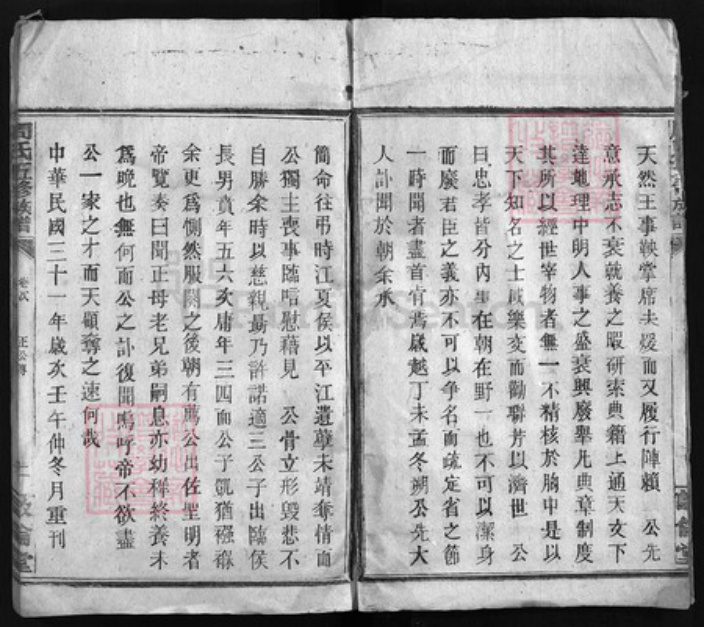 天然王事鞅掌席未煖而又履行陣賴 公先
意承志不衰就養之暇研索典籍上通天文下
達地理中明人事之盛衰興廢舉凡典章制度
其所以經世宰物者無一不精核於胸中是以
天下知名之士咸樂交而勸聯芳以濟世 公
曰忠孝皆分內事在朝在野一也不可以潔身
而廢君臣之義亦不可以爭名而疏定省之節
一時聞者盡首肯焉歲越丁未孟冬朔公先大
人訃聞於朝余承
簡命往弔時江夏侯以平江遺孽未靖奪情而
公獨主喪事臨唁慰藉見 公骨立形毀悲不
自勝余時以慈親
乃許諾適三公子出臨侯
長男賁年五六次庸年三四而公子
余更爲惻然服闋之後朝有薦公出佐聖明者
帝覽奏曰聞正母老兄弟嗣息亦幼稚終養未
爲晚也無何而公之訃復聞嗚呼帝不欲盡
公一家之才而天顧奪之速何哉
中華民國三十一年歲次壬午仲冬月重刊
周氏五修族譜
卷